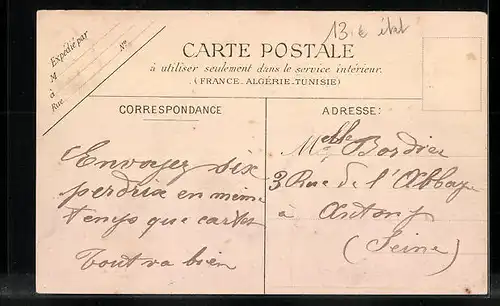 13 € état
Expédié par
M
à
Rue Nº
CARTE POSTALE
à utiliser seulement dans le service intérieur.
(FRANCE-ALGÉRIE-TUNISIE)
CORRESPONDANCE
ADRESSE:
Envoyez six
perdrix en même
temps que cartes
Tout va bien
Melle Bordier
3 Rue de l'Abbaye
à Antony
(Seine)